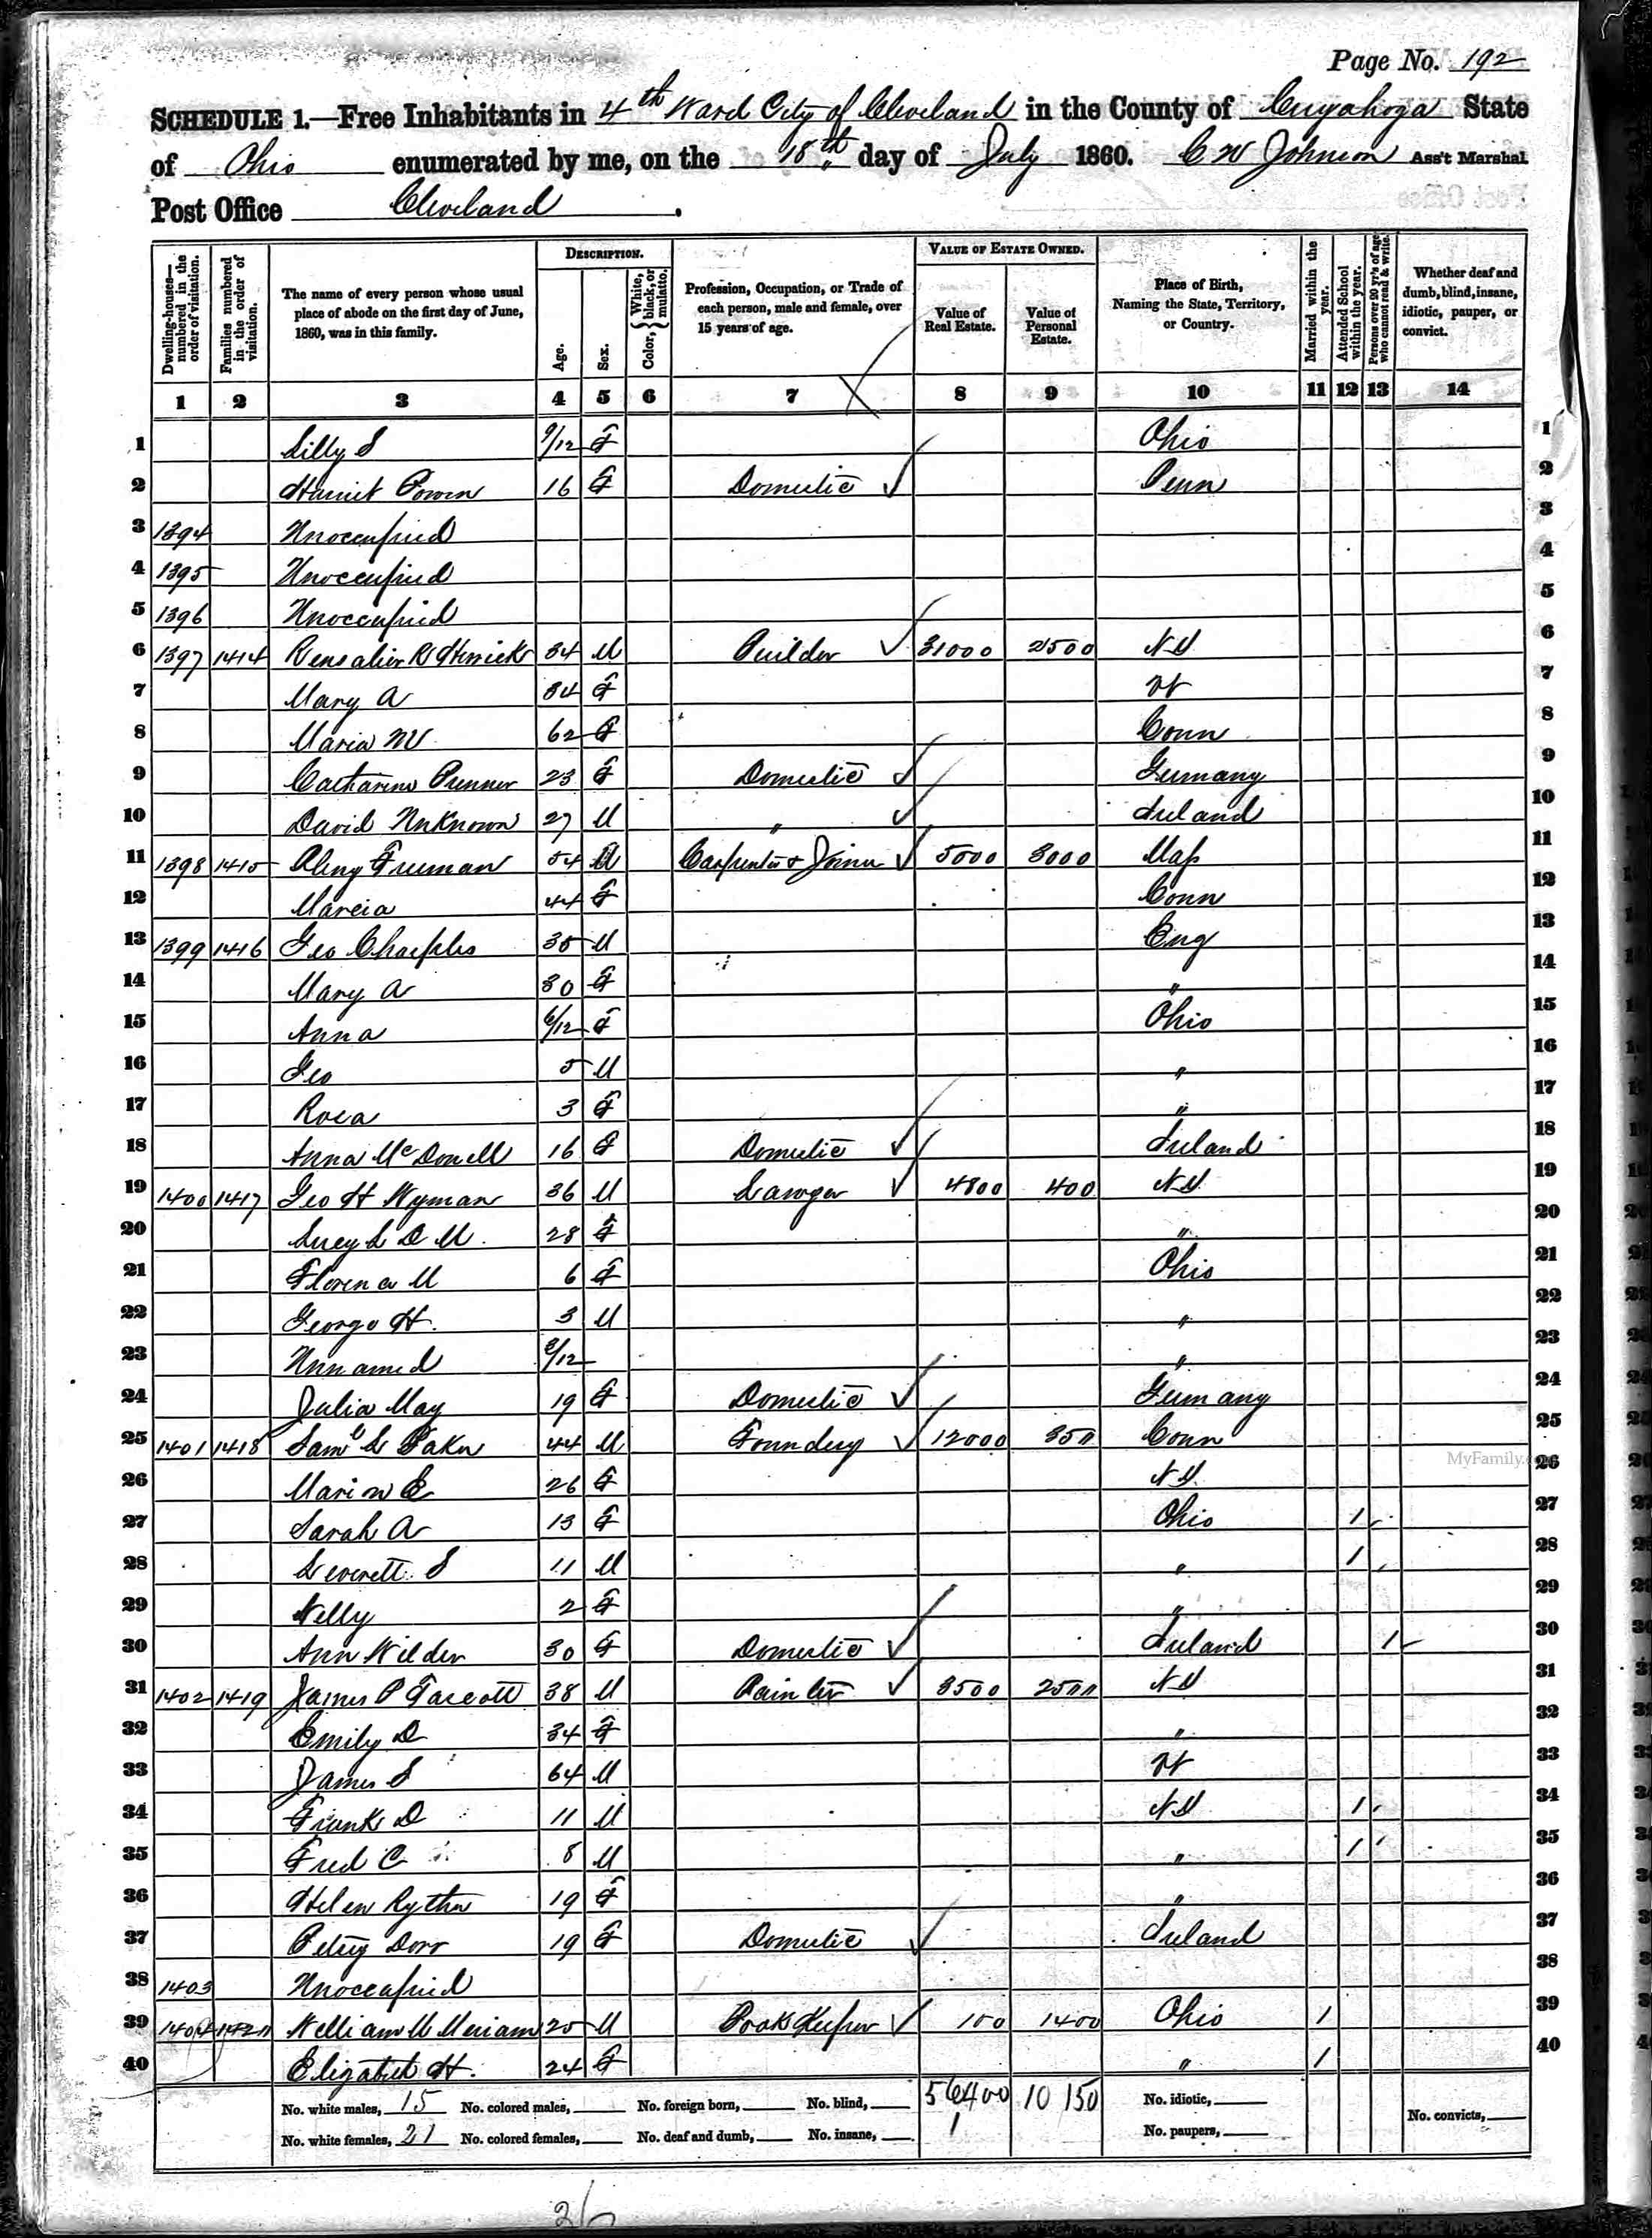 Page No. 192
SCHEDULE 1.—Free Inhabitants in 4th Ward City of Cleveland in the County of Cuyahoga State
of Ohio enumerated by me, on the 18th day of July 1860. C W Johnson Ass't Marshal
Post Office Cleveland.
Dwelling-houses—numbered in the order of visitation.
Families numbered in the order of visitation.
The name of every person whose usual place of abode on the first day of June, 1860, was in this family.
DESCRIPTION.
Age.
Sex.
Color, { White, black, or mulatto.
Profession, Occupation, or Trade of each person, male and female, over 15 years of age.
VALUE OF ESTATE OWNED.
Value of Real Estate.
Value of Personal Estate.
Place of Birth, Naming the State, Territory, or Country.
Married within the year.
Attended School within the year.
Persons over 20 y'rs of age who cannot read & write.
Whether deaf and dumb, blind, insane, idiotic, pauper, or convict.
1 2 3 4 5 6 7 8 9 10 11 12 13 14
1 Lilly S 9/12 F Ohio 1
2 Harriet 16 F Domestic Penn 2
3 1394 Unoccupied 3
4 1395 Unoccupied 4
5 1396 Unoccupied 5
6 1397 1414 Rensalier R Herrick 34 M Builder 31000 2500 N Y 6
7 Mary A 34 F Vt 7
8 Maria W 62 F Conn 8
9 Catharine 23 F Domestic Germany 9
10 David Unknown 27 M " Ireland 10
11 1398 1415 Freeman 54 M Carpenter & Joiner 5000 3000 Mass 11
12 Marcia 44 F Conn 12
13 1399 1416 Geo 35 M Eng 13
14 Mary A 30 F " 14
15 Anna 6/12 F Ohio 15
16 Geo 5 M " 16
17 Rosa 3 F " 17
18 Anna McDonell 16 F Domestic Ireland 18
19 1400 1417 Geo H Wyman 36 M Lawyer 4800 400 N Y 19
20 Lucy L D M. 28 F " 20
21 Florence M 6 F Ohio 21
22 George H. 3 M " 22
23 Unnamed /12 " 23
24 Julia May 19 F Domestic Germany 24
25 1401 1418 Saml L 44 M Foundery 12000 350 Conn 25
26 Marion E 26 F N Y. 26
27 Sarah A 13 F Ohio 1 27
28 Leverett S 11 M " 1 28
29 Nelly 2 F " 29
30 Ann Wilder 30 F Domestic Ireland 1 30
31 1402 1419 James P 38 M Painter 3500 2500 N Y 31
32 Emily D 34 F " 32
33 James S 64 M Vt 33
34 Frank D 11 M N Y 1 34
35 Fred C 8 M " 1 35
36 Helen 19 F " 36
37 Betsy Dorr 19 F Domestic Ireland 37
38 1403 Unoccupied 38
39 1404 1420 William M Meriam 25 M Book Keeper 100 1400 Ohio 1 39
40 Elizabeth H. 24 F " 1 40
No. white males, 15 No. colored males, No. foreign born, No. blind, 56400 10 150 No. idiotic,
No. white females, 21 No. colored females, No. deaf and dumb, No. insane, 1 No. paupers, No. convicts,
36
MyFamily.c